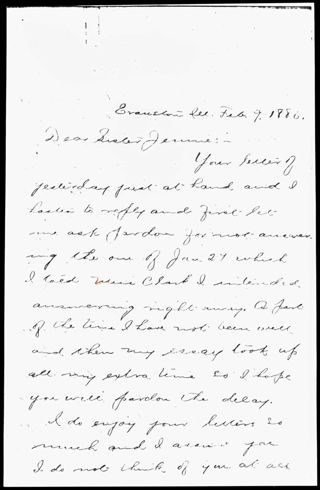 Evanston Ill. Feb 9, 1886.
Dear Sister Jennie:-
Your letter of
yesterday just at hand, and I
hasten to reply and first let
me ask pardon for not answer-
ing the one of Jan 27 which
I told Clark I intended
answering right away. A part
of the time I have not been well
and then my essay took up
all my extra time so I hope
you will pardon the delay.
I do enjoy your letters so
much and I assure you
I do not think of you at all